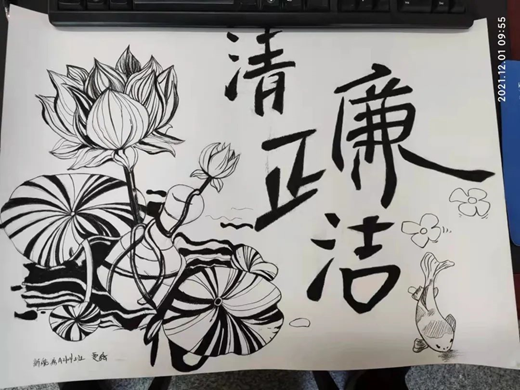 清正
廉洁
2021.12.01 09:55